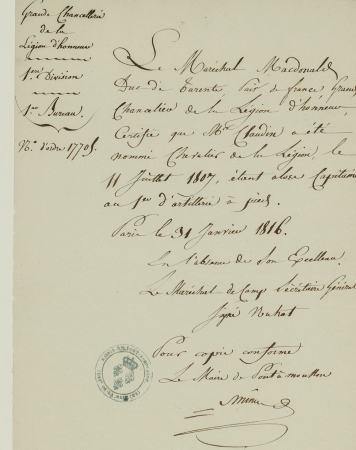 Grande Chancellerie
de la
Légion d'honneur
1ere Division
1er Bureau
N.o d'ordre 17705.
Le Maréchal Macdonald
Duc de Tarente Pair de france, Grand
Chancelier de la Légion d'honneur,
Certifie que Mr. Claudin a été
nommé Chevalier de la Légion, le
11 Juillet 1807, étant alors Capitaine
au 1er d'artillerie à pied.
Paris le 31 Janvier 1816.
En l'absence de Son Excellence
Le Maréchal de Camp Secrétaire Général
Signé
Pour copie conforme
Le Maire de Pont-à-mousson